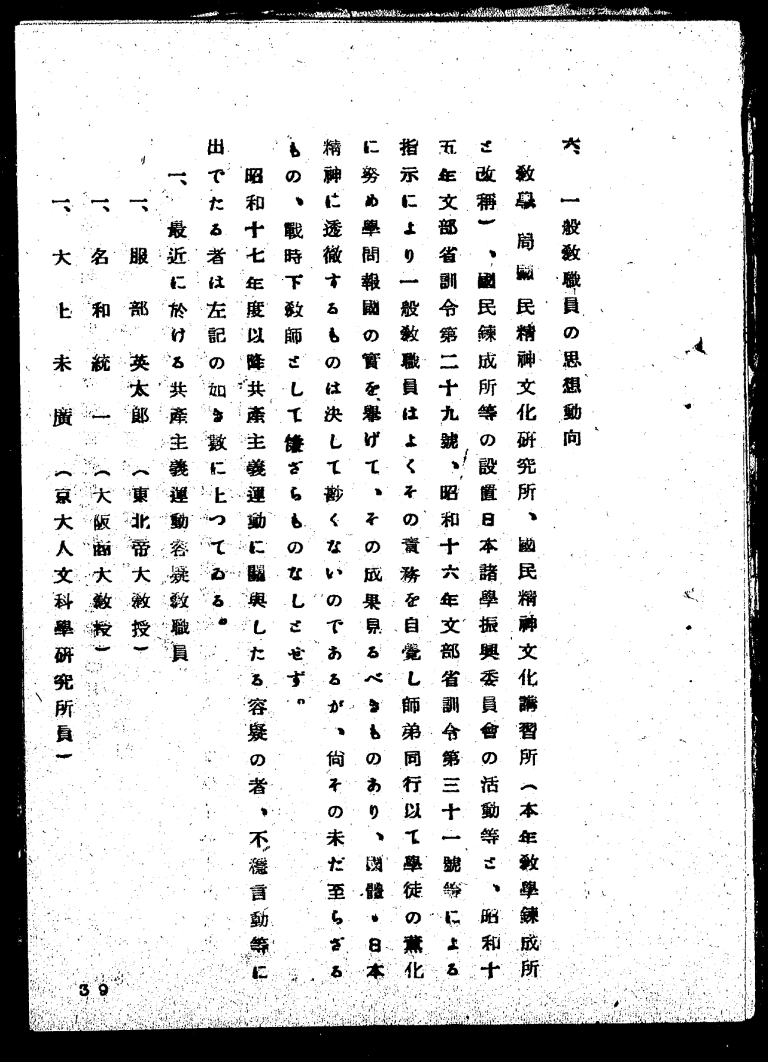 六、一般敎職員の思想動向
敎學局國民精神文化硏究所、國民精神文化講習所(本年敎學鍊成所
と改稱)、國民鍊成所等の設置日本諸學振興委員會の活動等と、昭和十
五年文部省訓令第二十九號、昭和十六年文部省訓令第三十一號等による
指示により一般敎職員はよくその責務を自覺し師弟同行以て學徒の薰化
に努め學問報國の實を擧げて、その成果見るべきものあり、國體、日本
精神に透徹するものは決して尠くないのであるが、尙その未だ至らざる
もの、戰時下敎師として慊ざらものなしとせず。
昭和十七年度以降共產主義運動に關與したる容疑の者、不穩言動等に
出でたる者は左記の如き數に上つてゐる。
一、最近に於ける共產主義運動容疑敎職員
一、服部英太郞(東北帝大敎授)
一、名和統一(大阪商大敎授)
一、大上末廣(京大人文科學硏究所員)
39